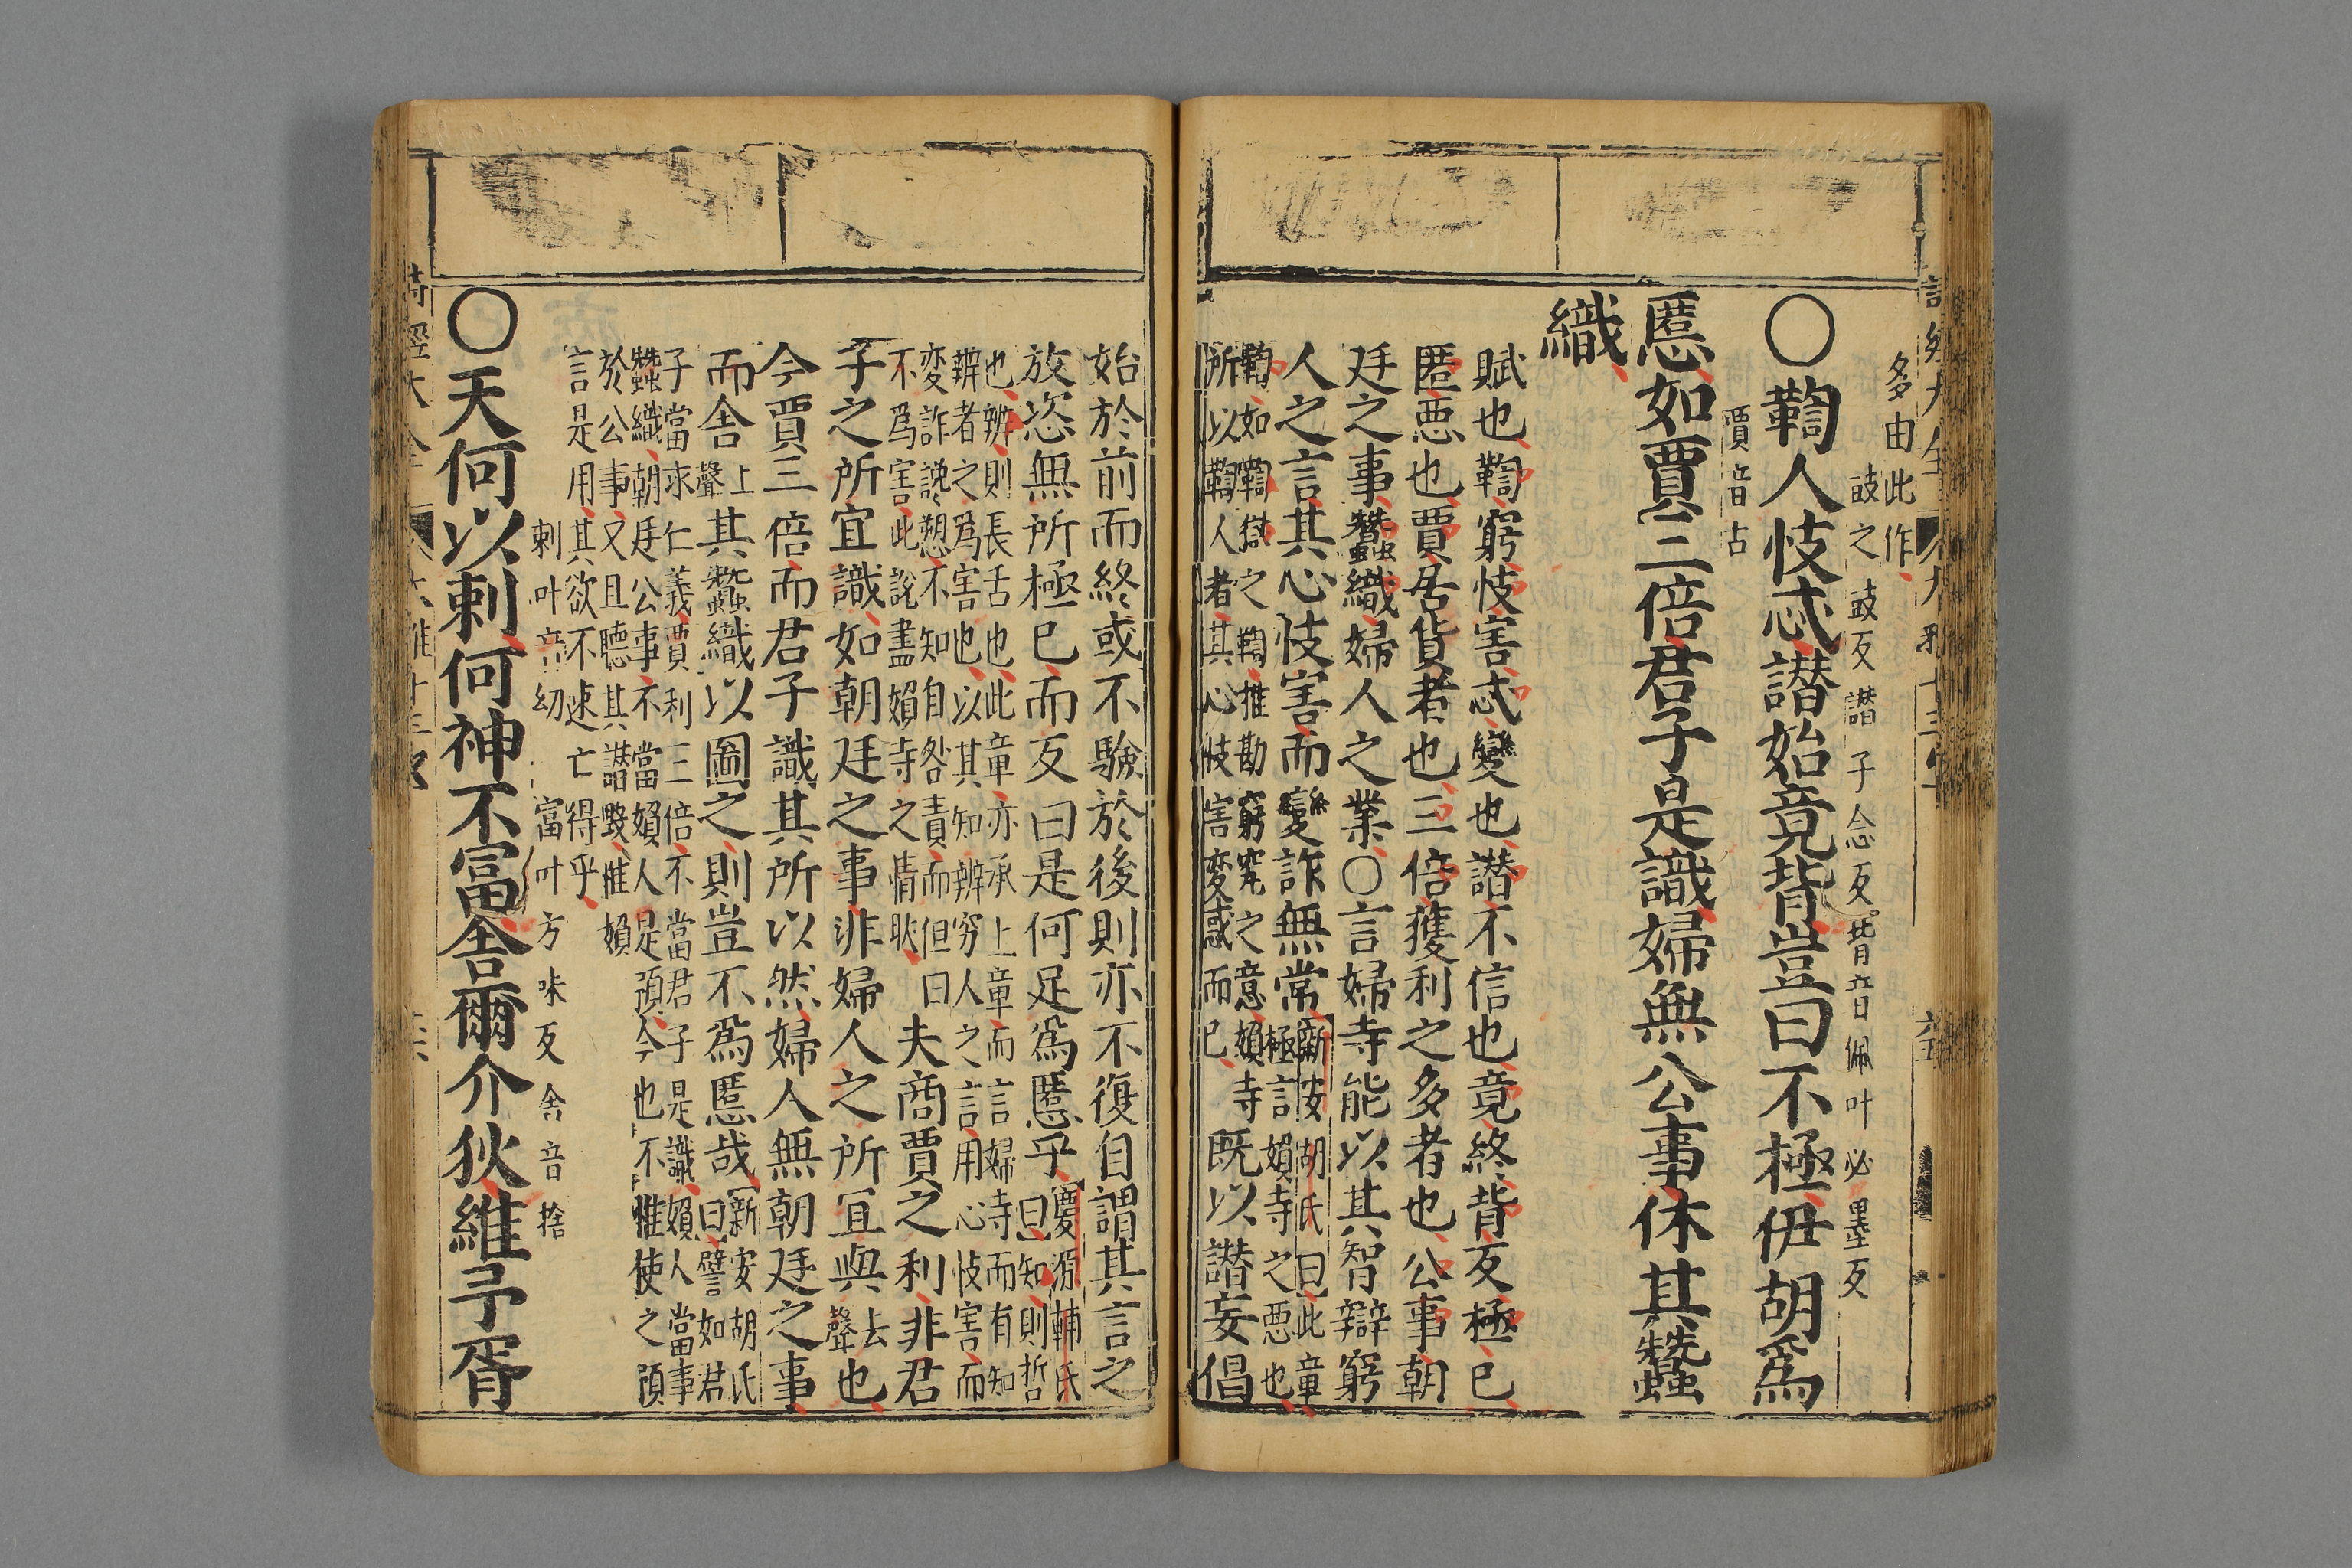 多由此作
豉之豉反譖子念反背音佩叶必墨反
○鞫人忮忒譖始竟背豈曰不極伊胡爲
賈音古
慝如賈三倍君子是識婦無公事休其蠶
織
賦也鞫窮忮害忒變也譖不信也竟終背反極已
匿惡也賈居貨者也三倍獲利之多者也公事朝
廷之事蠶織婦人之業○言婦寺能以其智辯窮
人之言其心忮害而變詐無常
新安胡氏曰此章
極言婦寺之惡也
鞫如鞫獄之鞫推勘窮究之意婦寺
所以鞫人者其心忮害変惑而已
既以譖妄倡
始於前而終或不驗於後則亦不復自謂其言之
放恣無所極已而反曰是何足爲慝乎
慶源輔氏
曰知則哲
也辨則長舌也此章亦承上章而言婦寺而有知
辨者之爲害也以其知辨窮人之言用心忮害而
変詐譖愬不知自咎責而但曰
不爲害此說盡婦寺之情狀
夫商賈之利非君
子之所宜識如朝廷之事非婦人之所宜與
去
聲
也
今賈三倍而君子識其所以然婦人無朝廷之事
而舍
上
聲
其蠶織以圖之則豈不爲慝哉
新安胡氏
曰譬如君
子當求仁義賈利三倍不當君子是識婦人當事
蠶織朝廷公事不當婦人是預今也不惟使之預
於公事又且聽其譖毀惟婦
言是用其欲不速亡得乎
刺叶音𥘉富叶方味反舍音捨
○天何以刺何神不富舍爾介狄維予胥